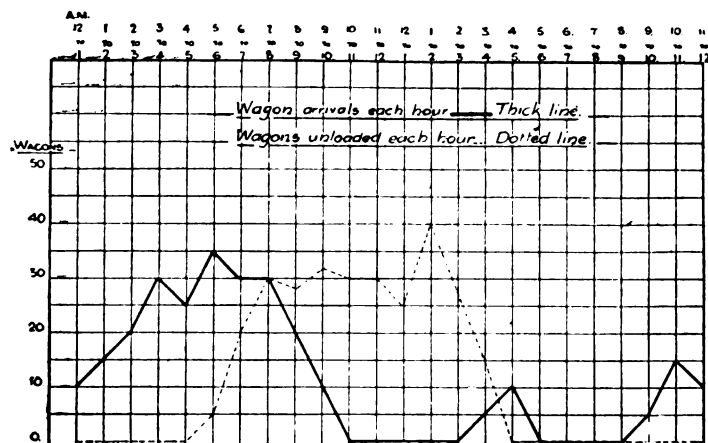 A.M.
12 1 2 3 4 5 6 7 8 9 10 11 12 1 2 3 4 5 6 7 8 9 10 11
to to to to to to to to to to to to to to to to to to to to to to to to
1 2 3 4 5 6 7 8 9 10 11 12 1 2 3 4 5 6 7 8 9 10 11 12
Wagon arrivals each hour Thick line.
Wagons unloaded each hour... Dotted line.
WAGONS
50
40
30
20
10
0.